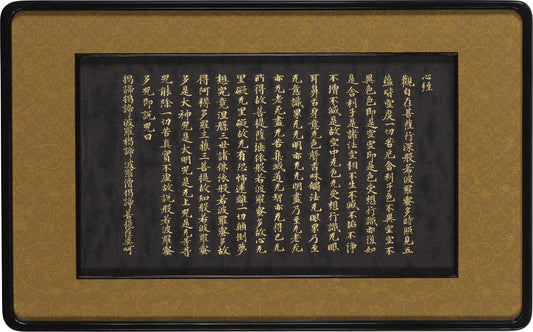 心經
觀自在菩薩行深般若波羅蜜多時照見五
蘊皆空度一切苦厄舍利子色不異空空不
異色色即是空空即是色受想行識亦復如
是舍利子是諸法空相不生不滅不垢不淨
不增不減是故空中无色无受想行識无眼
耳鼻舌身意无色聲香味觸法无眼界乃至
无意識界无无明亦无无明盡乃至无老死
亦无老死盡无苦集滅道无智亦无得以无
所得故菩提薩埵依般若波羅蜜多故心无
罣礙无罣礙故无有恐怖遠離一切顛倒夢
想究竟涅槃三世諸佛依般若波羅蜜多故
得阿耨多羅三藐三菩提故知般若波羅蜜
多是大神咒是大明咒是无上咒是无等等
咒能除一切苦真實不虛故說般若波羅蜜
多咒即說咒曰
揭諦揭諦 波羅揭諦 波羅僧揭諦 菩提薩婆訶